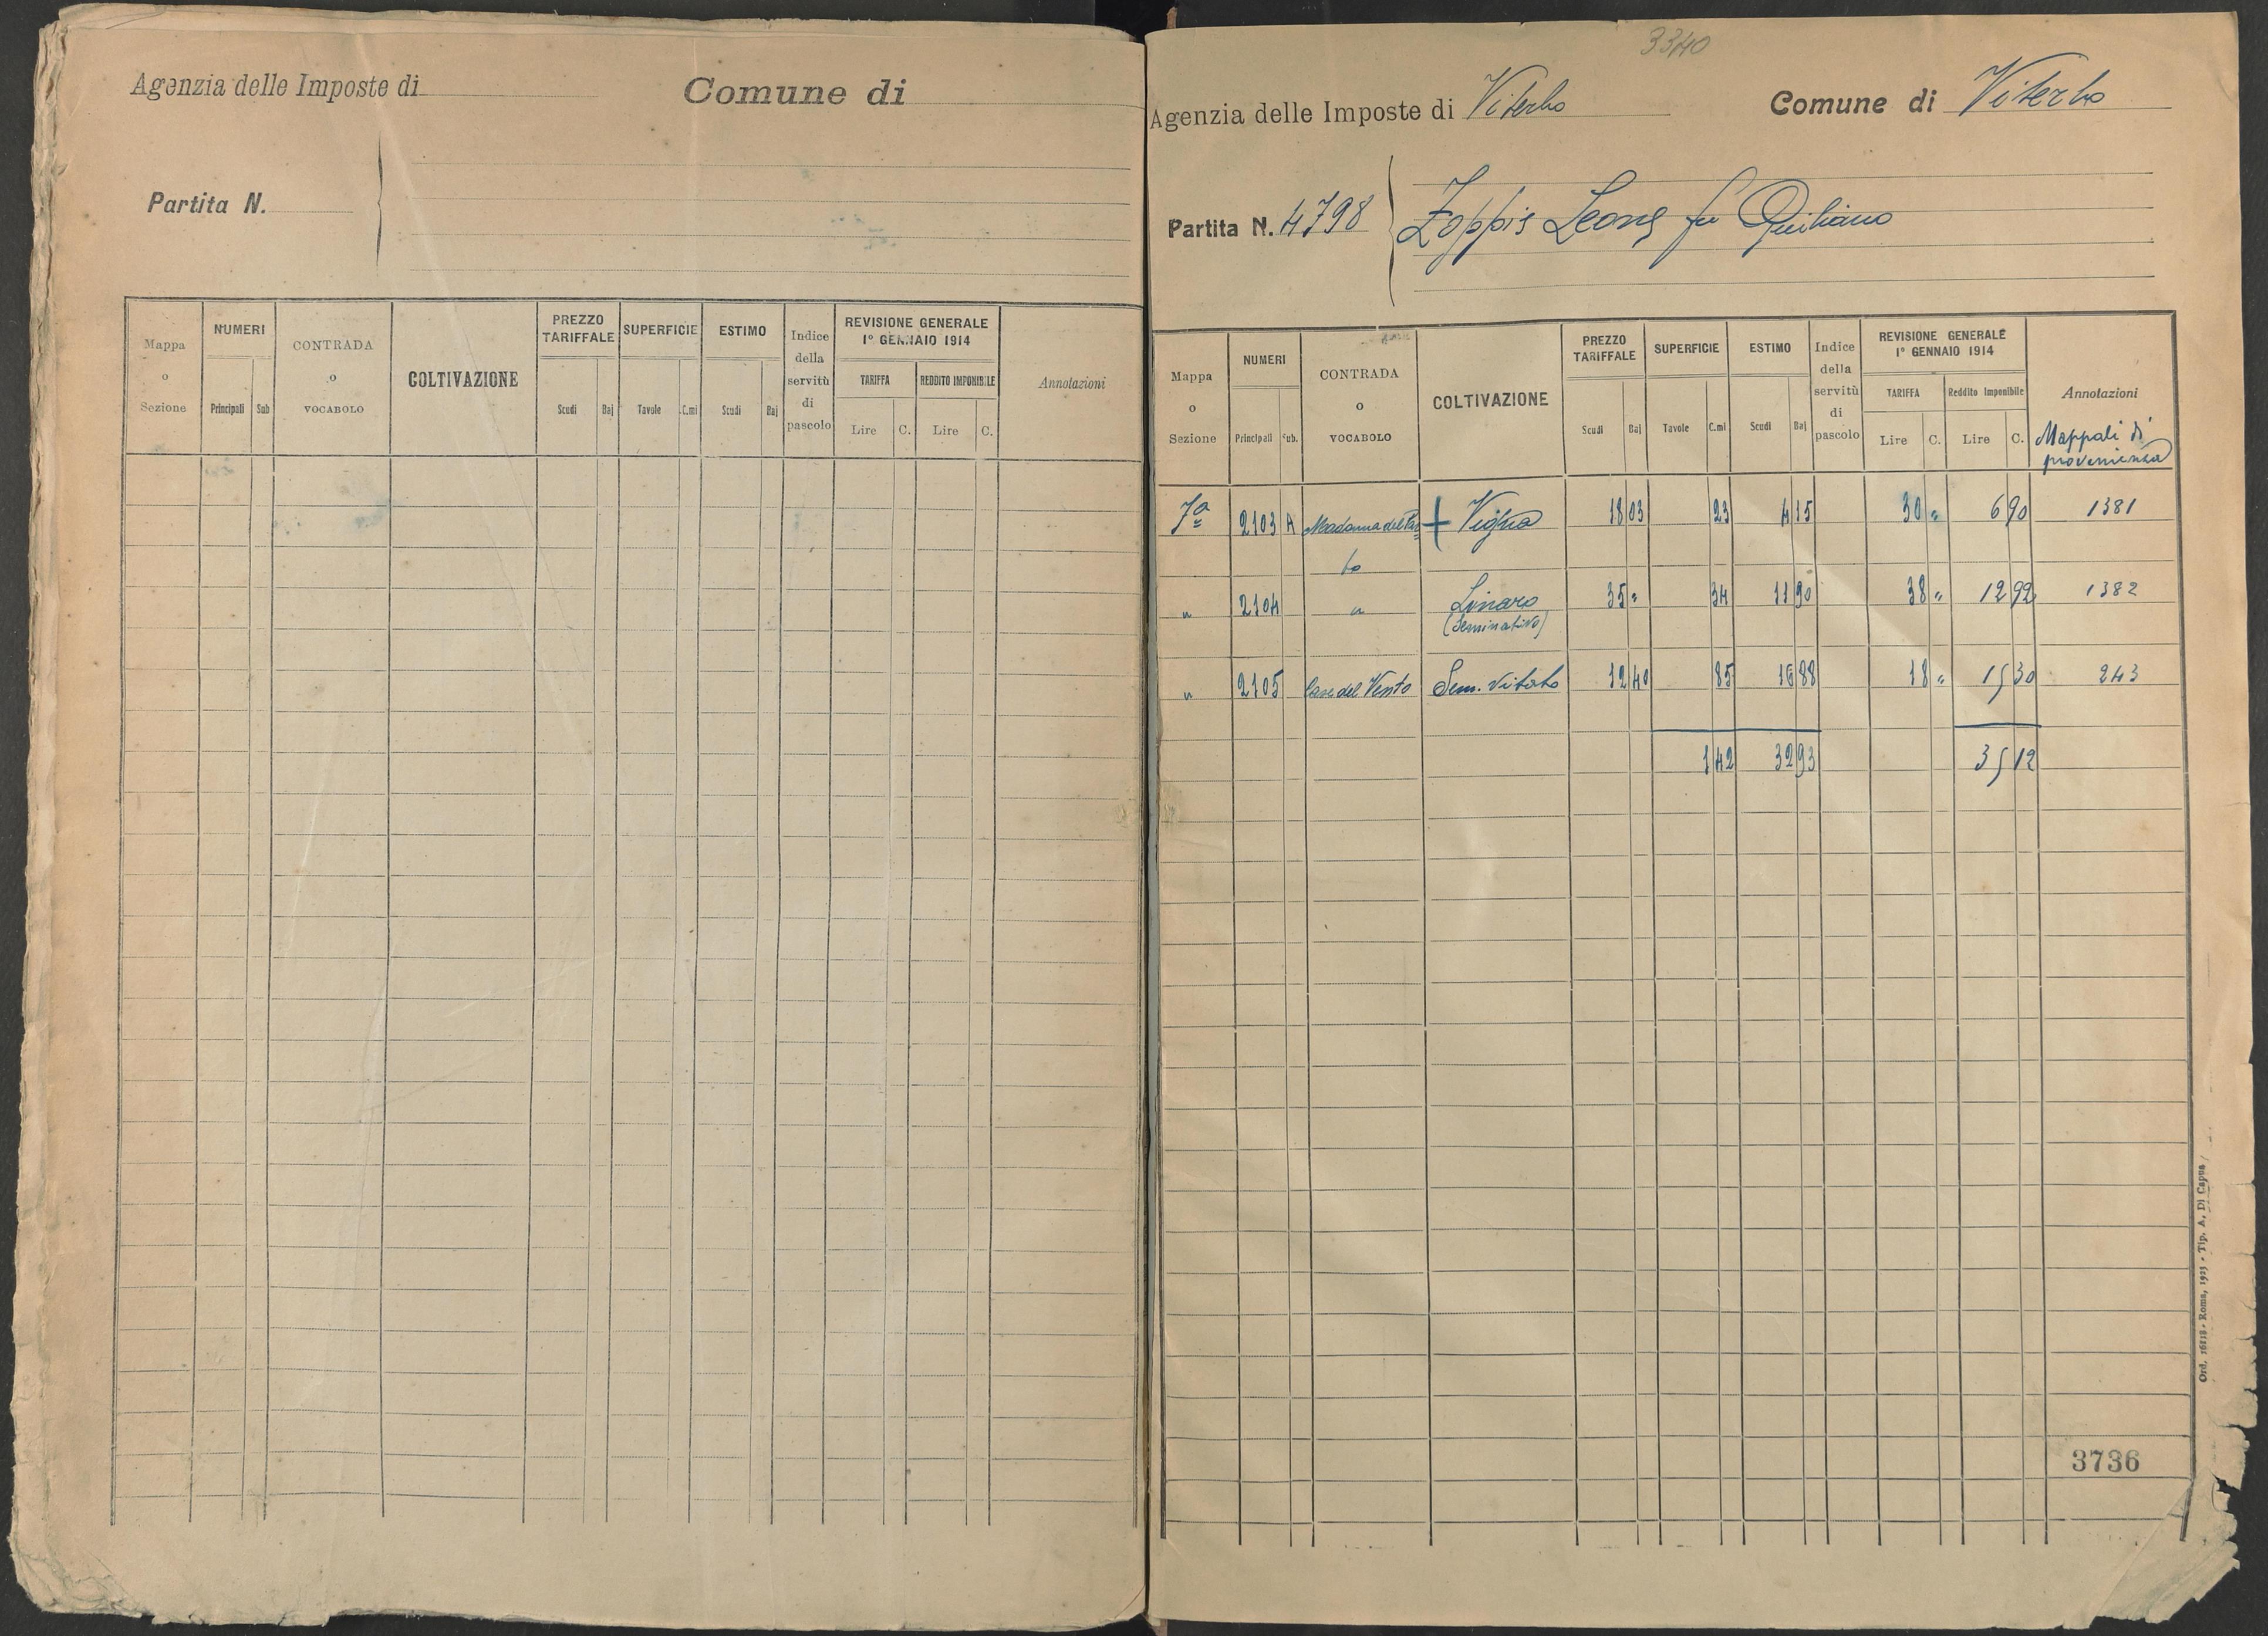 Agenzia delle Imposte di
Comune di
Partita N.
Mappa o Sezione
NUMERI
Principali Sub
CONTRADA o VOCABOLO
COLTIVAZIONE
PREZZO TARIFFALE
Scudi Baj
SUPERFICIE
Tavole C.mi
ESTIMO
Scudi Baj
Indice della servitù di pascolo
REVISIONE GENERALE
1° GENNAIO 1914
TARIFFA
Lire C.
REDDITO IMPONIBILE
Lire C.
Annotazioni
3340
Agenzia delle Imposte di Viterbo
Comune di Viterbo
Partita N. 4798
Zoppis Leone fu Giuliano
Mappa o Sezione
NUMERI
Principali Sub.
CONTRADA o VOCABOLO
COLTIVAZIONE
PREZZO TARIFFALE
Scudi Baj
SUPERFICIE
Tavole C.mi
ESTIMO
Scudi Baj
Indice della servitù di pascolo
REVISIONE GENERALE
1° GENNAIO 1914
TARIFFA
Lire C.
Reddito Imponibile
Lire C.
Annotazioni
Mappali di
provenienza
7a 2103 A Madonna del + Vigna 18 03 23 4 15 30 " 6 90 1381
" 2104 " Linaro 35 " 34 11 90 38 " 12 92 1382
(Seminativo)
" 2105 Case del Vento Sem. Vitato 12 40 85 16 88 18 " 15 30 243
1 42 32 93 35 12
3736
Ord. 16818 - Roma, 1923 - Tip. A. Di Capua